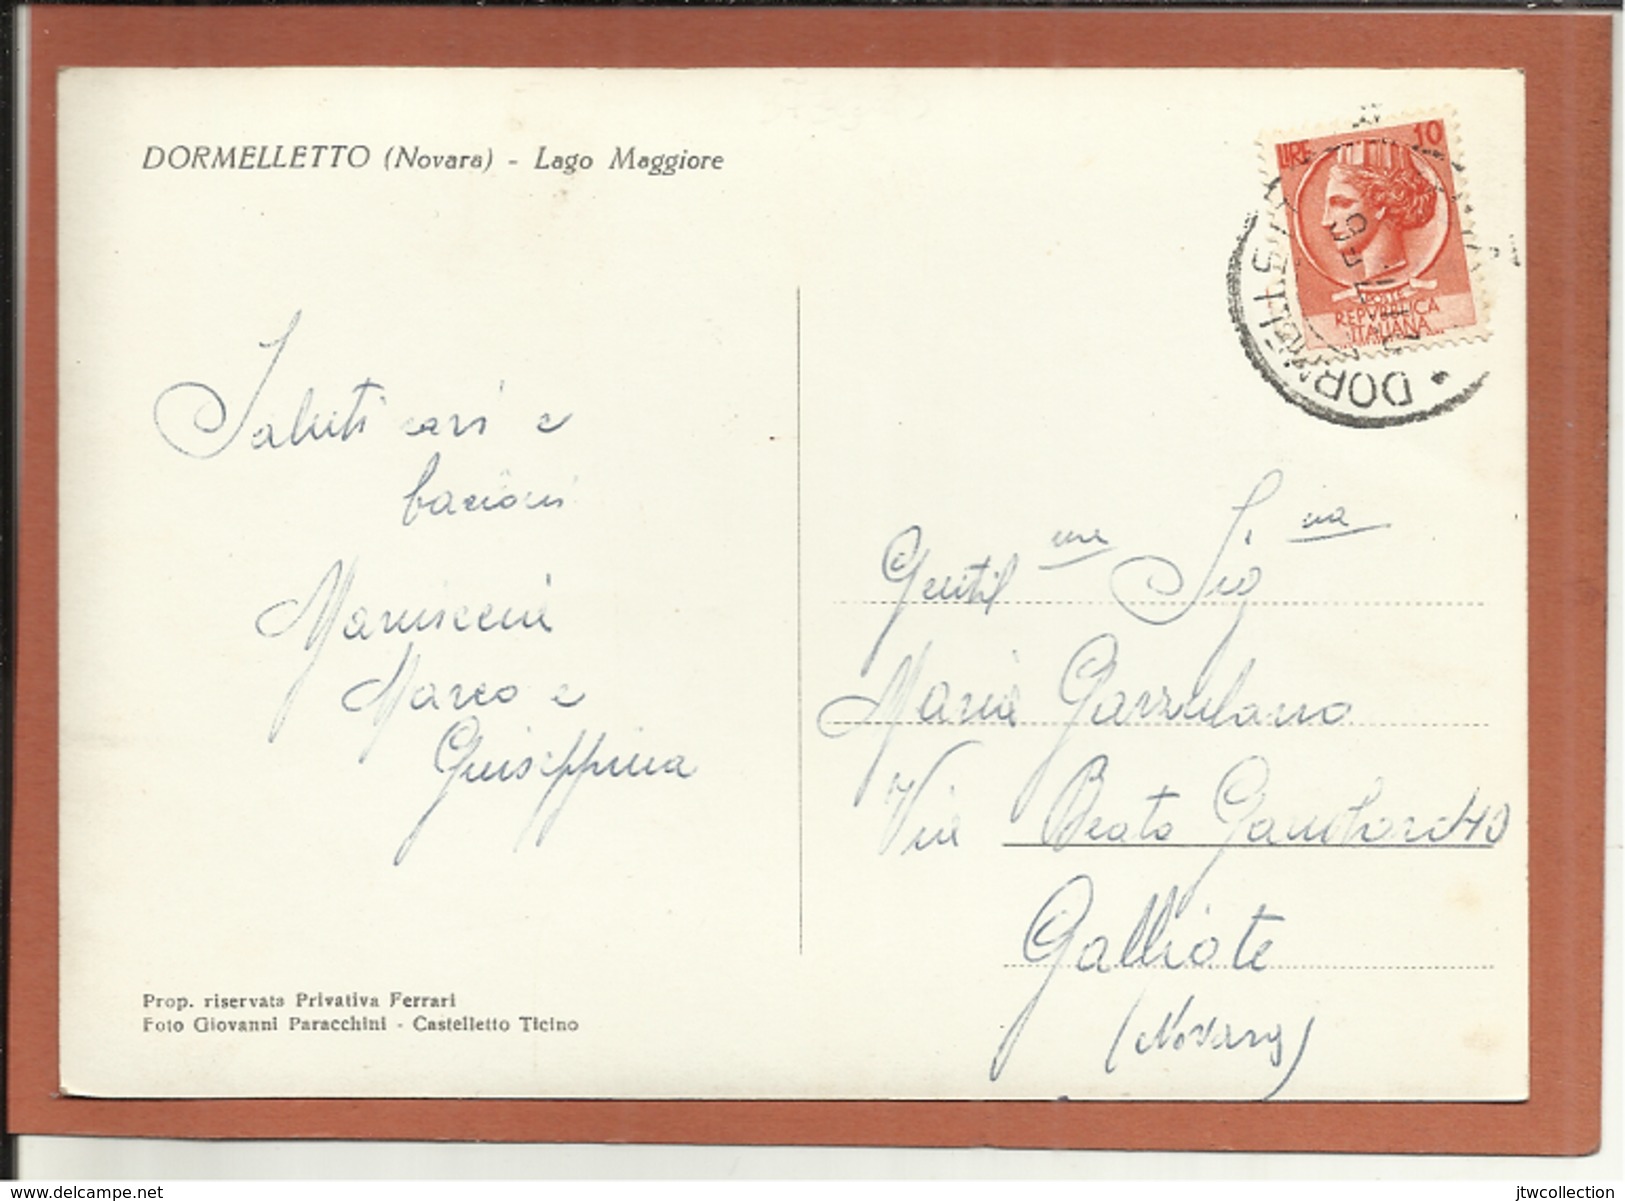 DORMELLETTO (Novara) - Lago Maggiore
LIRE 10
POSTE
REPVBBLICA
ITALIANA
DORMELLETTO
Saluti cari e
bacioni
Mariuccia
Marco e
Giuseppina
Gentil me Sig na
Maria Garzulano
Via Beato
Galliate
(Novara)
Prop. riservata Privativa Ferrari
Foto Giovanni Paracchini - Castelletto Ticino
delcampe.net
jtwcollection